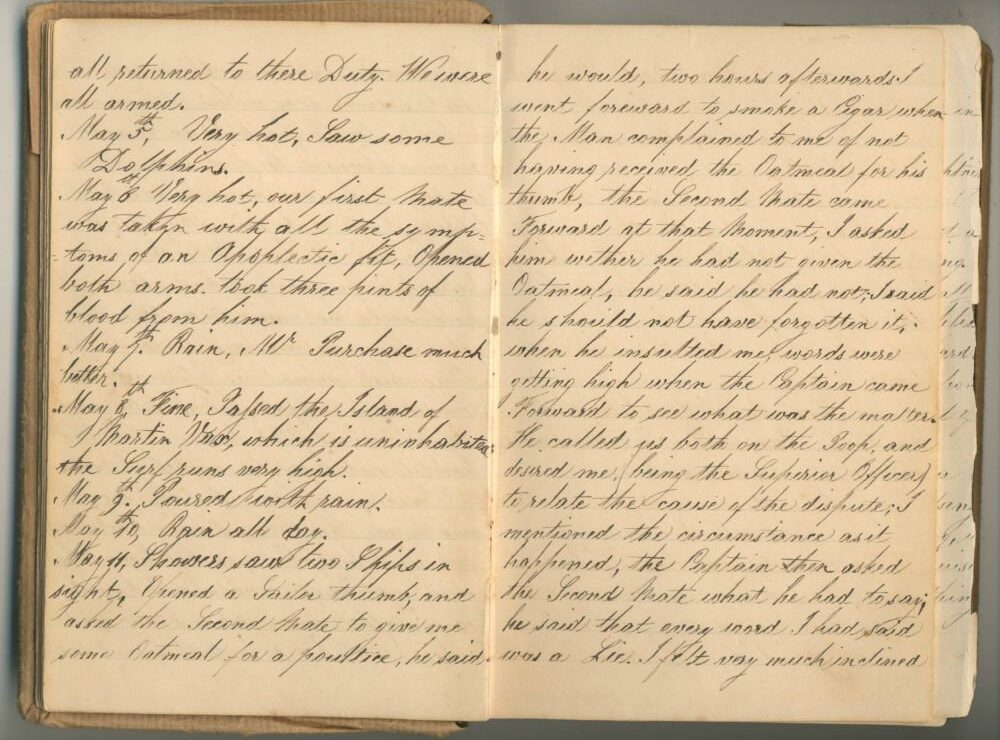 all returned to there Duty. We were
all armed.
May 5th, Very hot, Saw some
Dolphins.
May 6th Very hot, our first Mate
was taken with all the symp=
=toms of an Apoplectic fit, Opened
both arms. took three pints of
blood from him.
May 7th. Rain, Mr Purchase much
better.
May 8th, Fine, Passed the Island of
Martin Vax, which is uninhabited
the Surf runs very high.
May 9th, Poured with rain.
May 10th, Rain all day.
May 11, Showers saw two Ships in
sight, Opened a Sailor thumb, and
asked the Second Mate to give me
some Oatmeal for a poultice, he said
he would, two hours afterwards I
went foreward to smoke a Cigar when
the Man complained to me of not
having received the Oatmeal for his
thumb, the Second Mate came
Forward at that Moment, I asked
him wether he had not given the
Oatmeal, he said he had not; I said
he should not have forgotten it,
when he insulted me, words were
getting high when the Captain came
Forward to see what was the matter.
He called us both on the Poop, and
desired me, (being the Superior Officer)
to relate the cause of the dispute; I
mentioned the circumstance as it
happened, the Captain then asked
the Second Mate what he had to say,
he said that every word I had said
was a Lie. I felt very much inclined